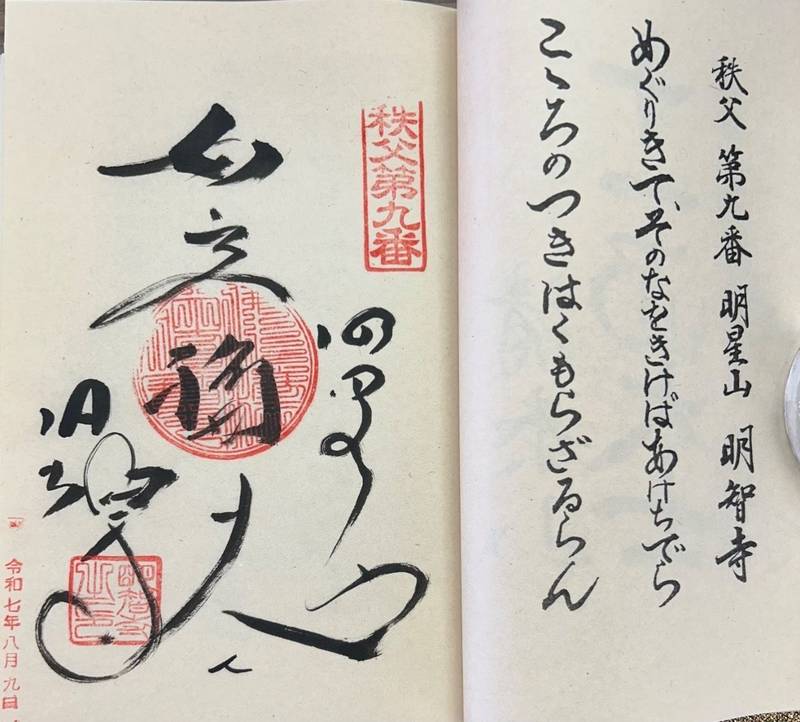 秩父 第九番 明星山 明智寺
めぐりきて、そのなをきけばあけちでら
こゝろのつきはくもらざるらん
秩父第九番
明星山
明智寺
令和七年八月九日